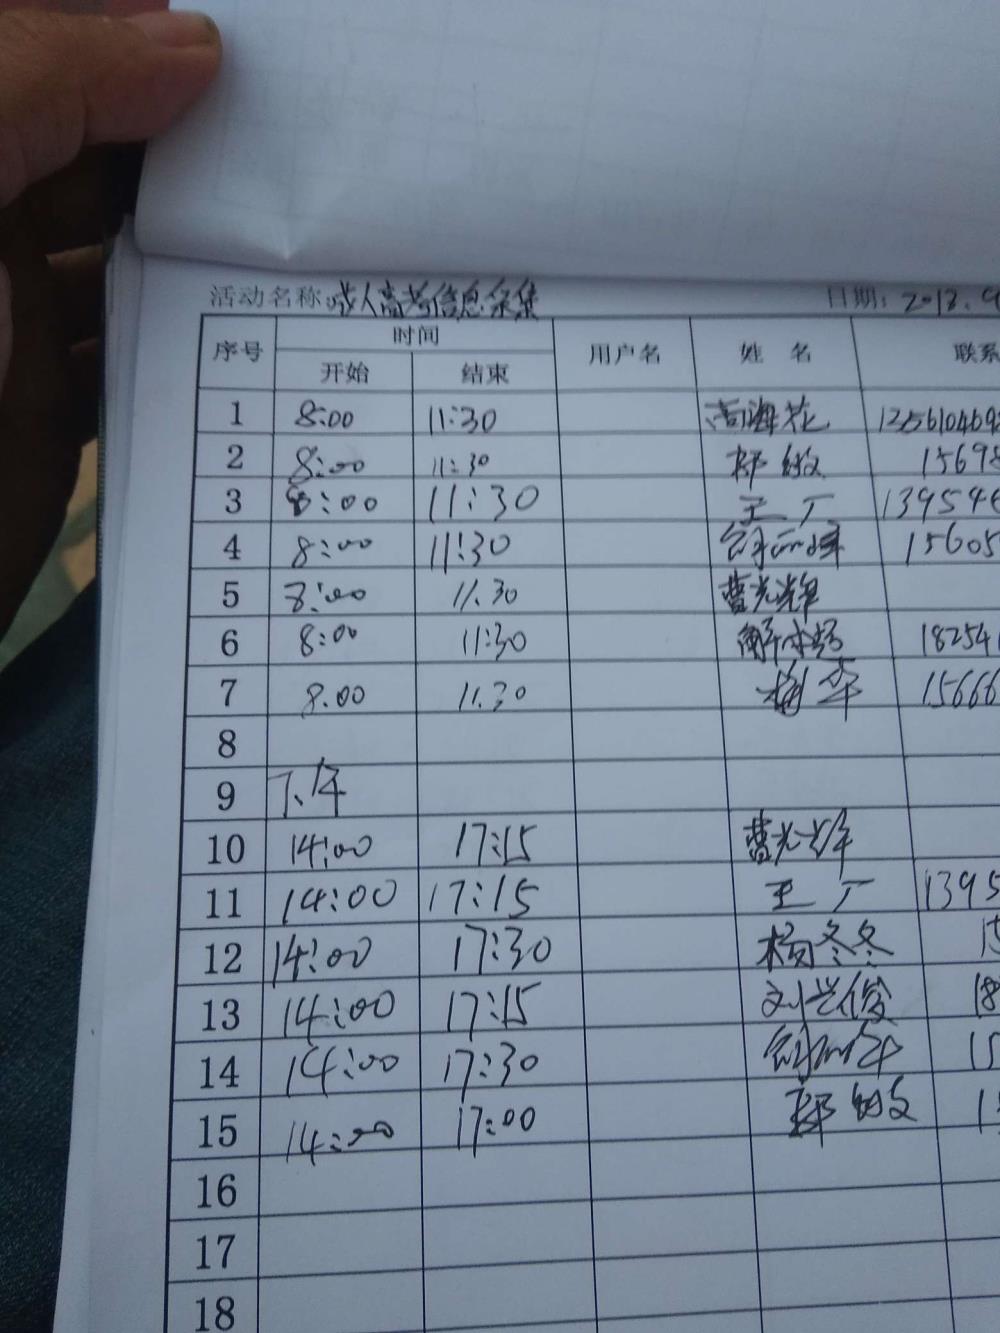 活动名称:成人高考信息采集 日期: 2012.9
序号 时间 用户名 姓 名 联系
开始 结束
1 8:00 11:30 海花
2 8:00 11:30 敏 15698
3 8:00 11:30 王广 139546
4 8:00 11:30 15605
5 8:00 11:30 曹光辉
6 8:00 11:30 解 18254
7 8:00 11:30 梅 15666
8
9 下午
10 14:00 17:15 曹光辉
11 14:00 17:15 王广 1395
12 14:00 17:30 杨冬冬
13 14:00 17:15 刘兴俊 18
14 14:00 17:30 15
15 14:00 17:00 敏
16
17
18